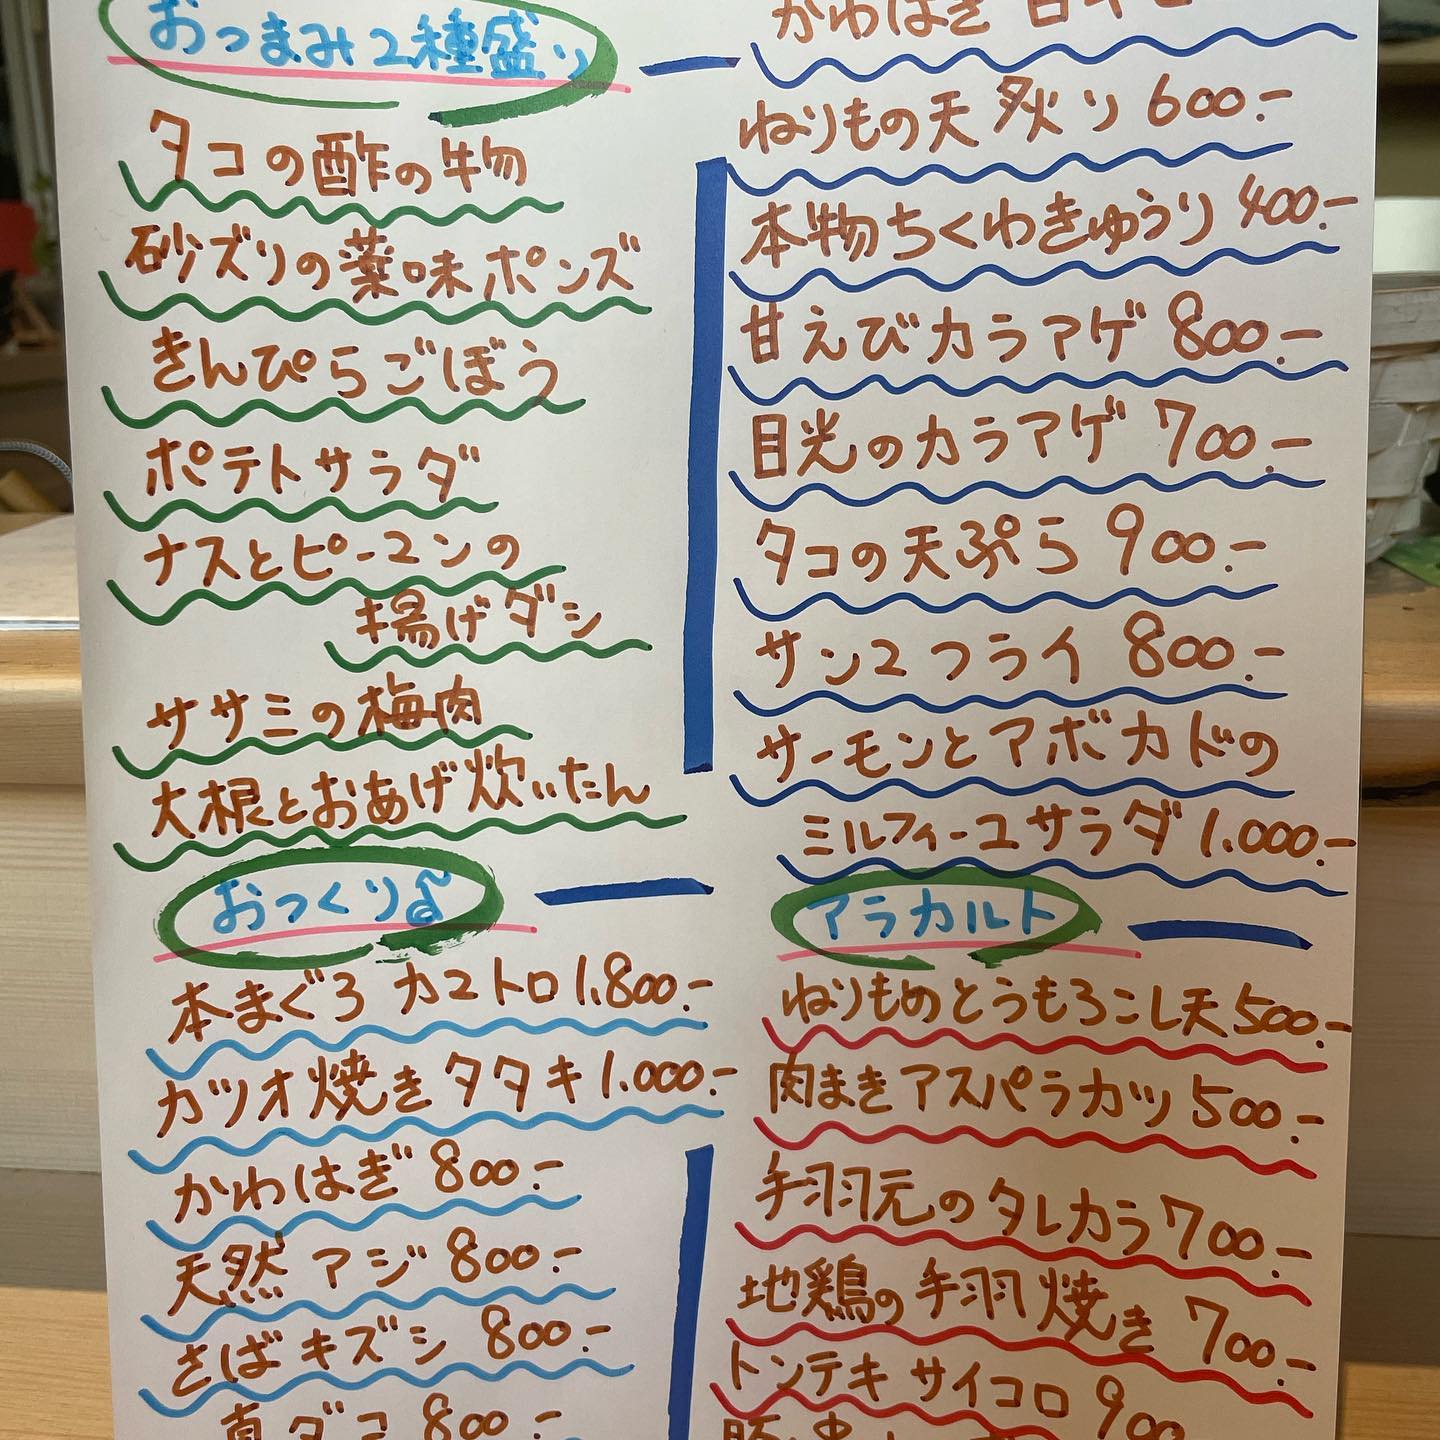 おつまみ2種盛り
タコの酢の物
砂ズリの薬味ポンズ
きんぴらごぼう
ポテトサラダ
ナスとピーマンの
揚げダシ
ササミの梅肉
大根とおあげ炊いたん
おつくり♪
本まぐろ カマトロ 1.800.-
カツオ焼きタタキ 1.000.-
かわはぎ 800.-
天然アジ 800.-
さばキズシ 800.-
真ダコ 800.-
かわはぎ
ねりもの天 炙り 600.-
本物ちくわきゅうり 400.-
甘えびカラアゲ 800.-
目光のカラアゲ 700.-
タコの天ぷら 900.-
サンマフライ 800.-
サーモンとアボカドの
ミルフィーユサラダ 1.000.-
アラカルト
ねりものとうもろこし天 500.-
肉まきアスパラカツ 500.-
手羽元のタレカラ 700.-
地鶏の手羽焼き 700.-
トンテキサイコロ 900